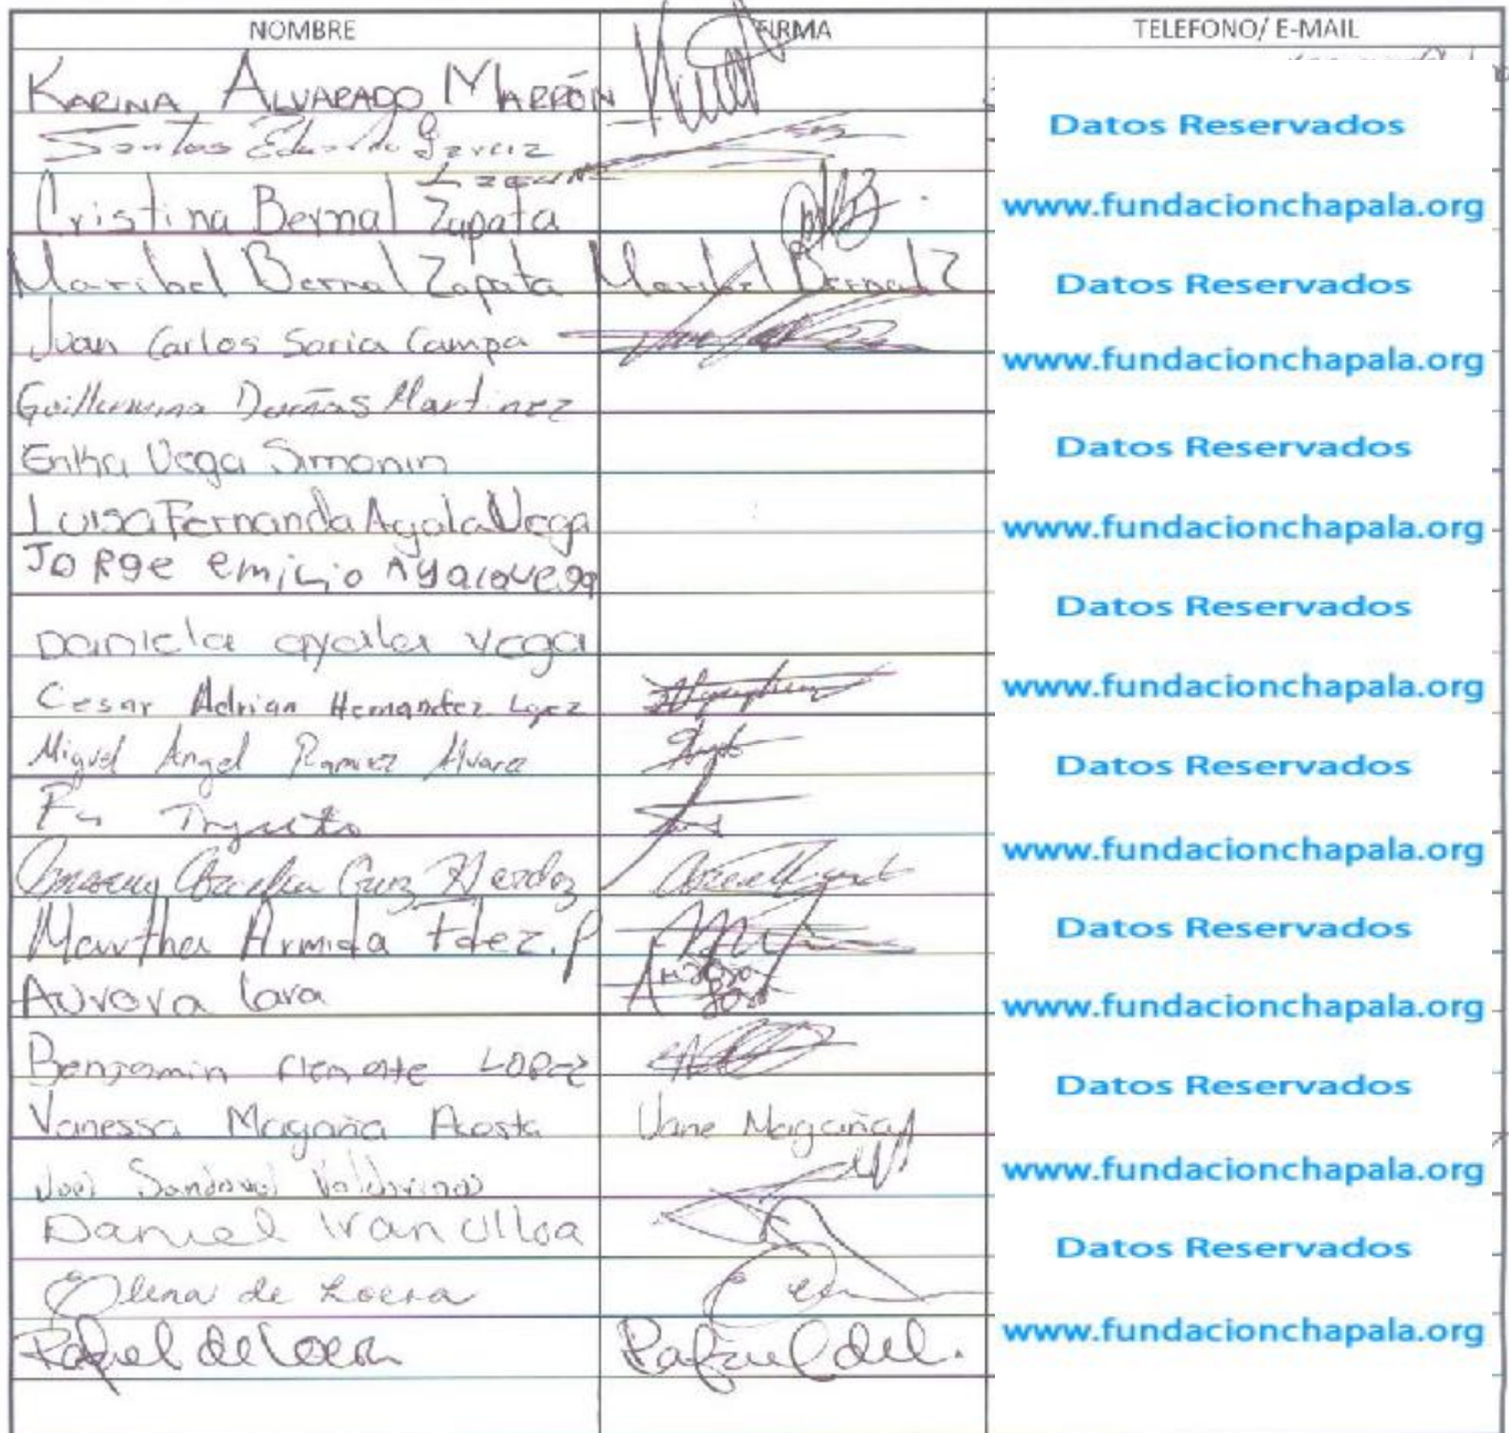 NOMBRE FIRMA TELEFONO/ E-MAIL
KARINA ALVARADO MARRÓN
Santos Eduardo Garcia
Datos Reservados
Cristina Bernal Zapata
www.fundacionchapala.org
Maribel Bernal Zapata Maribel Bernal Z
Datos Reservados
Juan Carlos Soria Campa
www.fundacionchapala.org
Guillermina Dueñas Martinez
Erika Vega Simonin
Datos Reservados
Luisa Fernanda Ayala Vega
www.fundacionchapala.org
JORge emilio Ayala vega
Datos Reservados
Daniela ayala vega
Cesar Adrian Hernandez Lopez
www.fundacionchapala.org
Miguel Angel Ramirez Alvarez
Datos Reservados
www.fundacionchapala.org
Cruz
Martha Armida Fdez. P
Datos Reservados
Aurora Lara
www.fundacionchapala.org
Benjamin Clemente LOPez
Datos Reservados
Vanessa Magaña Acosta Vane Magaña
Joel Sandoval Valdovinos
www.fundacionchapala.org
Daniel Ivan Ulloa
Datos Reservados
Elena de Loera
Rafael de Loera Rafael del.
www.fundacionchapala.org